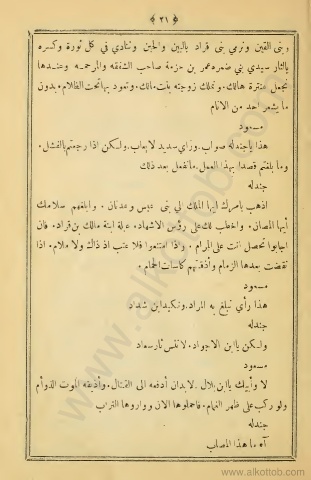 ﴿ ٢١ ﴾
وبنى القين ونرمي بنى قراد بالبين والحين وننادي في كل ثورة وكسره
بالثار سيدي بني ضمره عمر بن حزمة صاحب الشفقه والمرحمه وعندها
نجعل عنترة هالك . ونملك زوجته بنت مالك . وتعود بها تحت الظلام . بدون
ما يشعر احد من الانام
مسعود
هذا ياجندله صواب . وراي سديد لا يعاب . ولكن اذا رجعتم بالفشل .
وما بلغتم قصدا بهذا العمل . ما نفعل بعد ذلك
جندله
اذهب بامرك ايها الملك الى بني عبس وعدنان . وابلغهم سلامك
أيها المصان . واخطب لك على رؤس الاشهاد . عبلة ابنة مالك بن قراد . فان
اجابوا تحصل انت على المرام . واذا امتنعوا فلا عتب اذ ذاك ولا ملام . اذا
نقضت بعدها الزمام وأذقتهم كاسات الحمام .
مسعود
هذا رأي تبلغ به المراد . وتكيد ابن شداد
جندله
ولكن ياابن الاجواد . لا تنس ثار سعاد
مسعود
لا وأبيك ياابن بلال . لابد ان أدفعه الى القتال . وأذيقه الموت الذوأم
ولو ركب على ظهر الغمام . فاحملوها الان وواروها الترب
جندله
آه ما هذا المصاب
www.alkottob.com